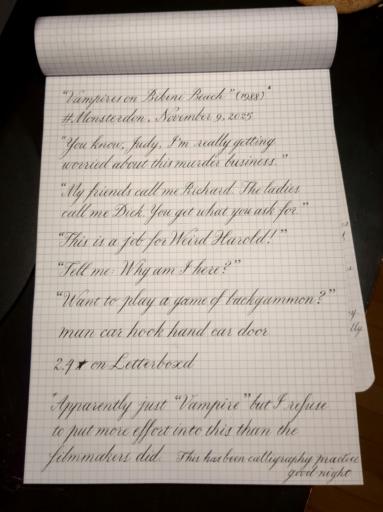 "Vampires on Bikini Beach" (1988)*
#Monsterdon, November 9, 2025
"You know, Judy, I'm really getting
worried about this murder business."
"My friends call me Richard. The ladies
call me Dick. You get what you ask for."
"This is a job for Weird Harold!"
"Tell me: Why am I here?"
"Want to play a game of backgammon?"
man car hook hand car door
2.4★ on Letterboxd
*Apparently just "Vampire" but I refuse
to put more effort into this than the
filmmakers did. This has been calligraphy practice
good night